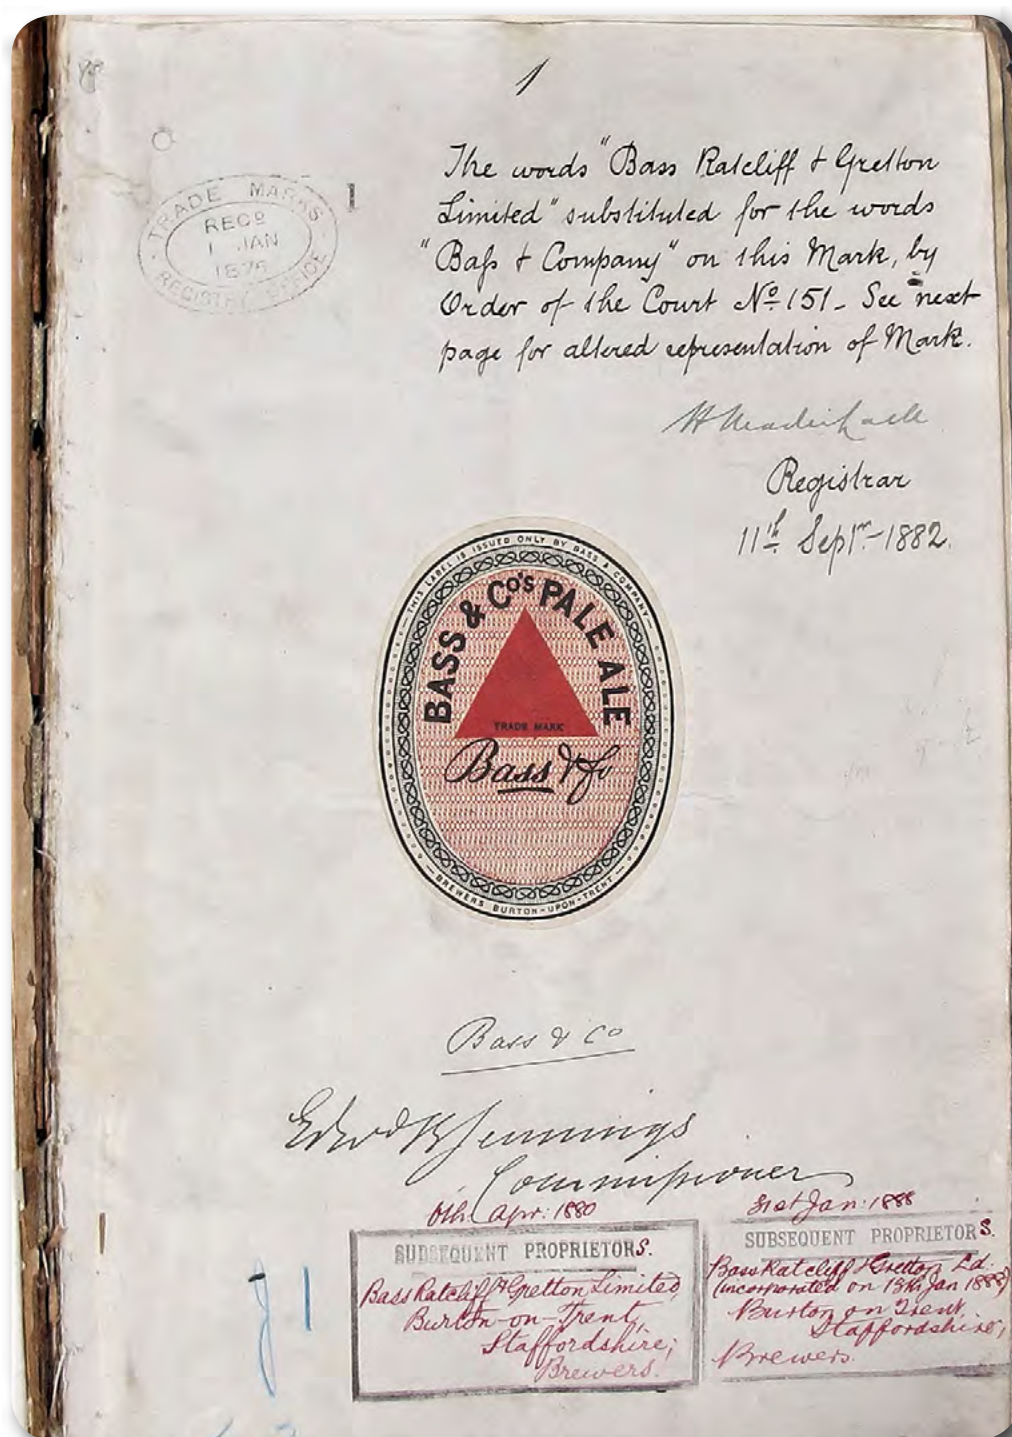 1
The words "Bass Ratcliff & Gretton
Limited" substituted for the words
"Baſs & Company" on this Mark, by
Order of the Court Nº 151 - See next
page for altered representation of Mark.
Registrar
11th Septr - 1882.
TRADE MARKS
REGD
1 JAN
1876
REGISTRY OFFICE
1
THIS LABEL IS ISSUED ONLY BY BASS & COMPANY
BASS & Co's PALE ALE
TRADE MARK
Bass & Co
BREWERS BURTON-UPON-TRENT
Bass & Co
Jennings
Commiſsioner
Apr: 1880
SUBSEQUENT PROPRIETORS.
Bass Ratcliff & Gretton Limited,
Burton-on-Trent,
Staffordshire;
Brewers.
31st Jan: 1888
SUBSEQUENT PROPRIETORS.
Bass Ratcliff & Gretton Ld.
(incorporated on 13th Jan 1888)
Burton on Trent,
Staffordshire,
Brewers.